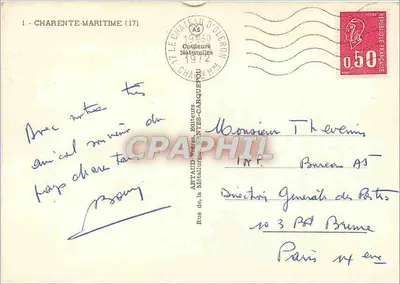 1 - CHARENTE-MARITIME (17)
17 LE CHATEAU D'OLERON
1972
CHARENTE Mme
AS
Couleurs
Naturelles
RÉPUBLIQUE FRANÇAISE
0,50
ARTAUD Frères, Editeurs
Rue de la Métallurgie, NANTES-CARQUEFOU
CPARHTIL
Avec notre très
amical souvenir du
pays charentais
Monsieur Thevenin
Bureau A5
Direction Générale des Postes
103 Bd Brune
Paris